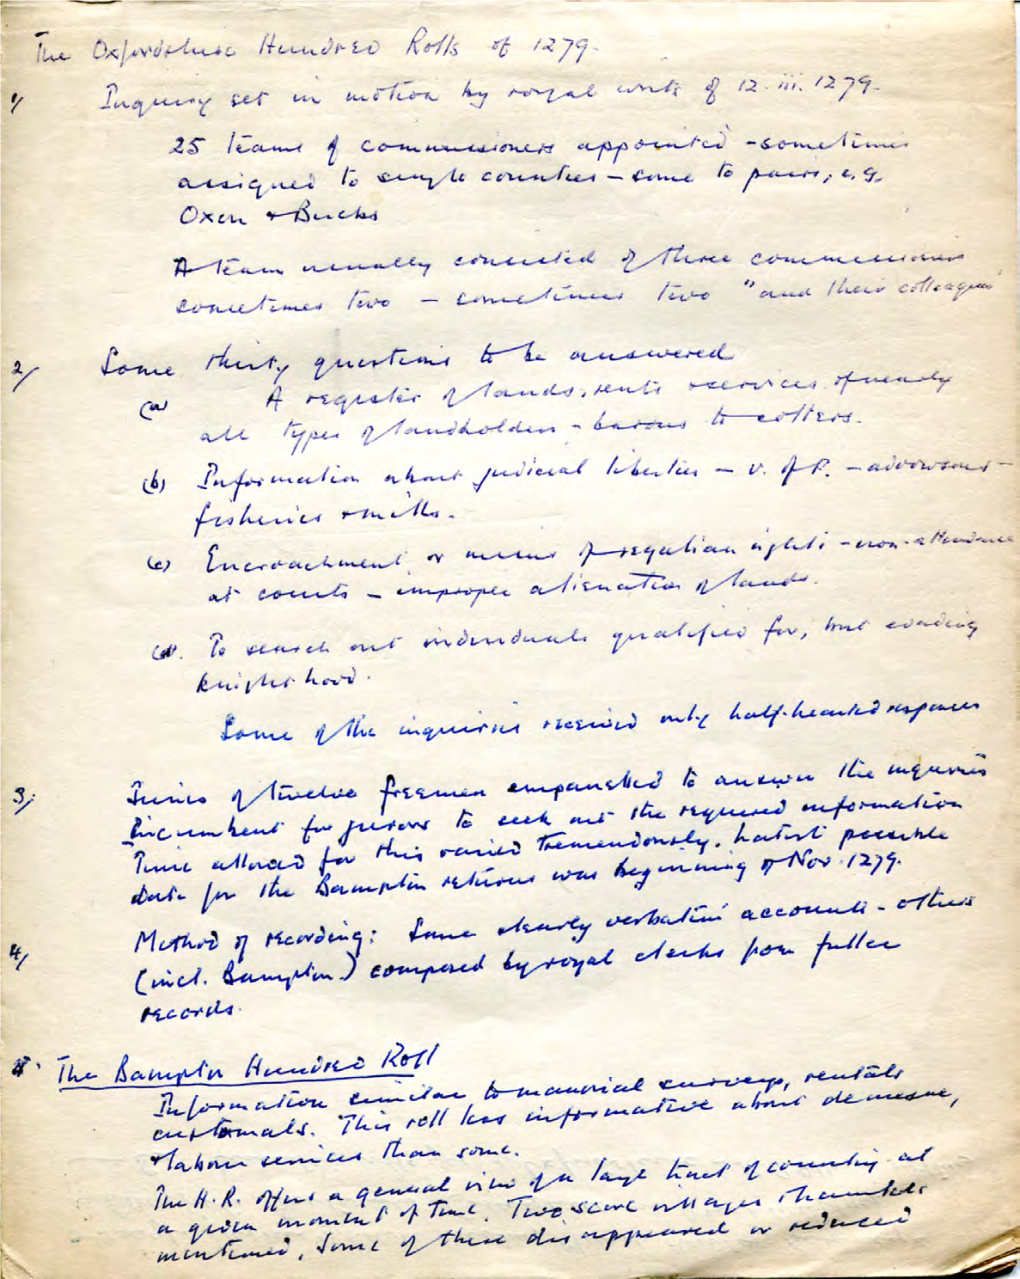 The Oxfordshire Hundred Rolls of 1279.
1/ Inquiry set in motion by royal writs of 12. iii. 1279.
25 teams of commissioners appointed - sometimes
assigned to single counties - some to pairs, e.g.
Oxon + Bucks
A team usually consisted of three commissioners
sometimes two - sometimes two "and their colleagues"
2/ Some thirty questions to be answered
(a) A register of lands, rents + services of nearly
all types of landholders - barons to cotters.
(b) Information about judicial liberties - v. of F. - advowsons -
fisheries + mills.
(c) Encroachment or misuse of regalian rights - non-attendance
at courts - improper alienation of lands.
(d). To search out individuals qualified for, but evading
knighthood.
Some of the inquiries received only half-hearted responses
3/ Juries of twelve freemen empanelled to answer the inquiries
Incumbent for jurors to seek out the required information
Time allowed for this varied tremendously. Latest possible
date for the Bampton returns was beginning of Nov. 1279.
4/ Method of recording: Some clearly verbatim accounts - others
(incl. Bampton) composed by royal clerks from fuller
records.
The Bampton Hundred Roll
Information similar to manorial surveys, rentals
customals. This roll less informative about demesne,
+ labour services than some.
The H.R. offers a general view of a large tract of country at
a given moment of time. Two score villages + hamlets
mentioned, some of these disappeared or reduced